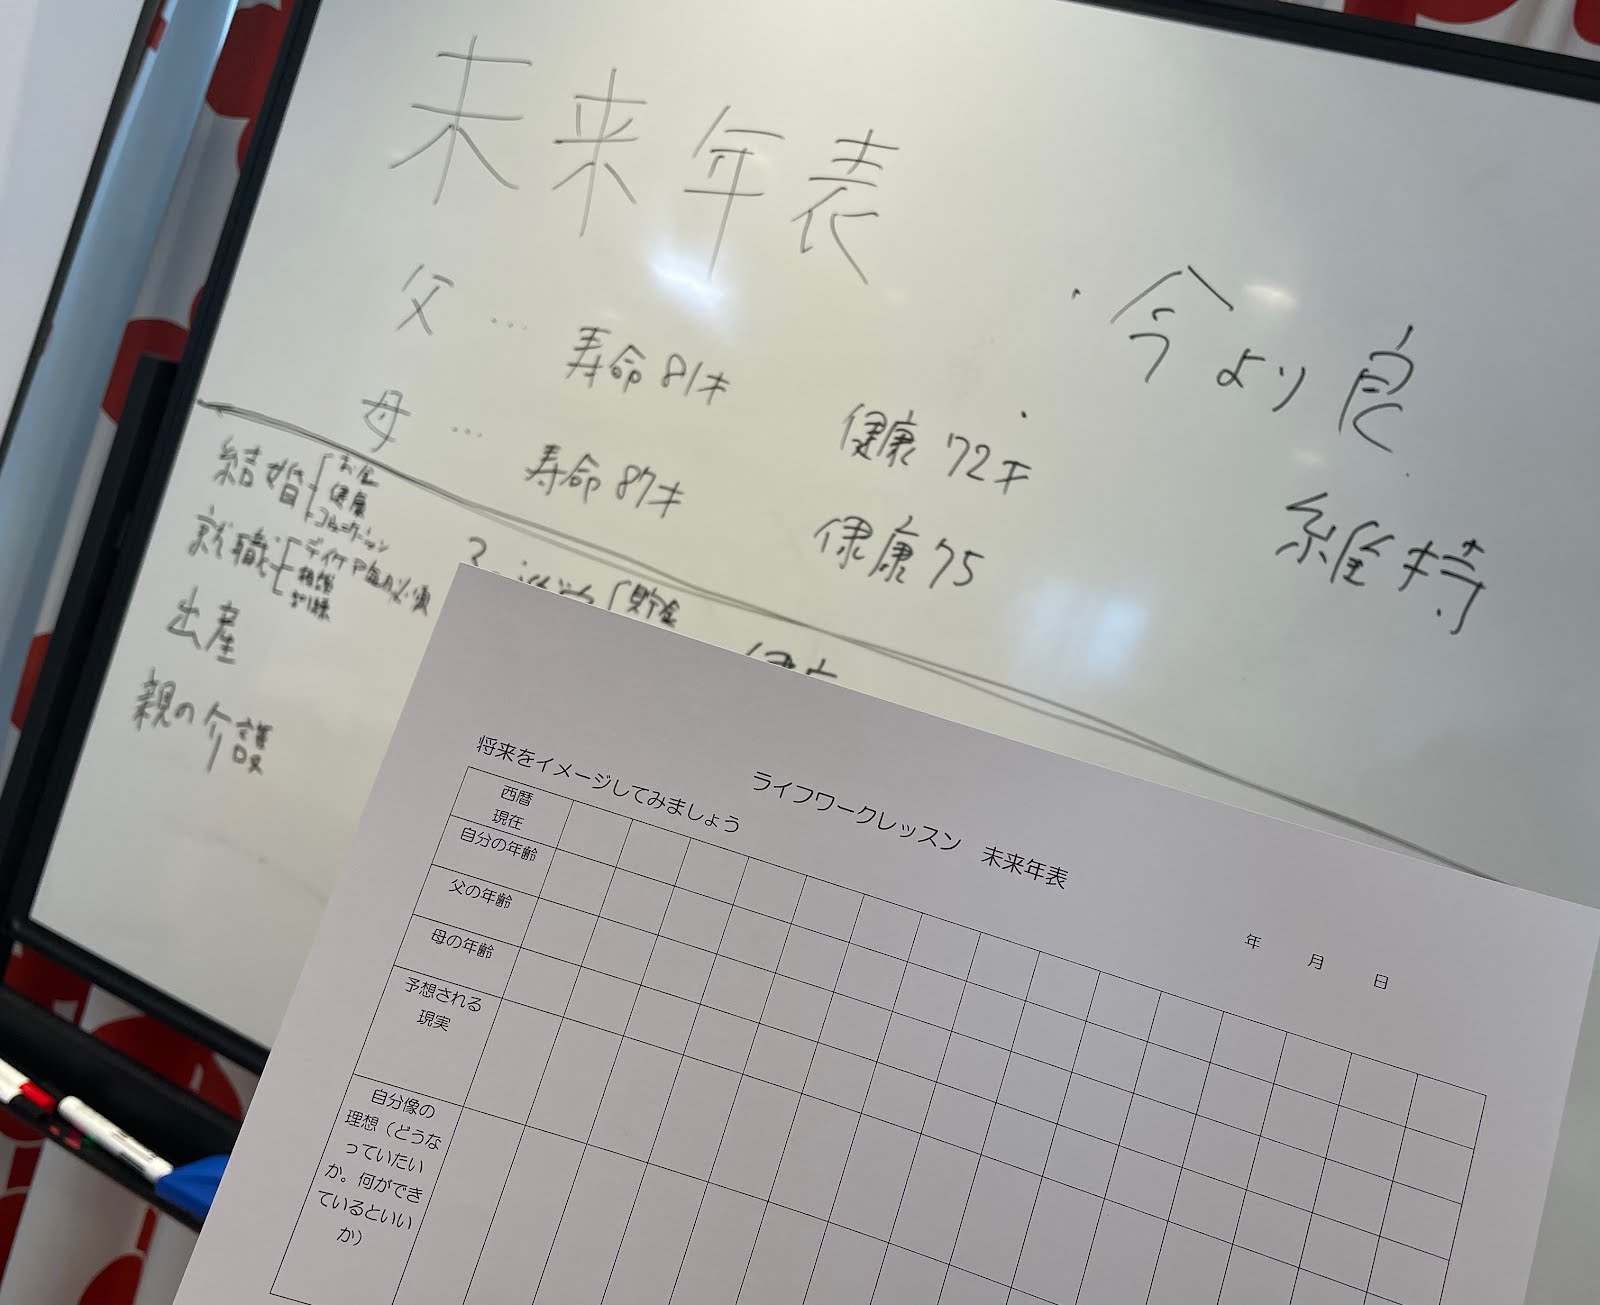 未来年表
父 … 寿命 81才 健康 72才
母 … 寿命 87才 健康 75
・今より良
維持
結婚 お金
健康
コミュニケーション
就職 デイケア
相談
訓練
出産
親の介護
貯金
ライフワークレッスン 未来年表
年 月 日
将来をイメージしてみましょう
西暦
現在
自分の年齢
父の年齢
母の年齢
予想される
現実
自分像の
理想（どうな
っていたい
か。何ができ
ているといい
か）